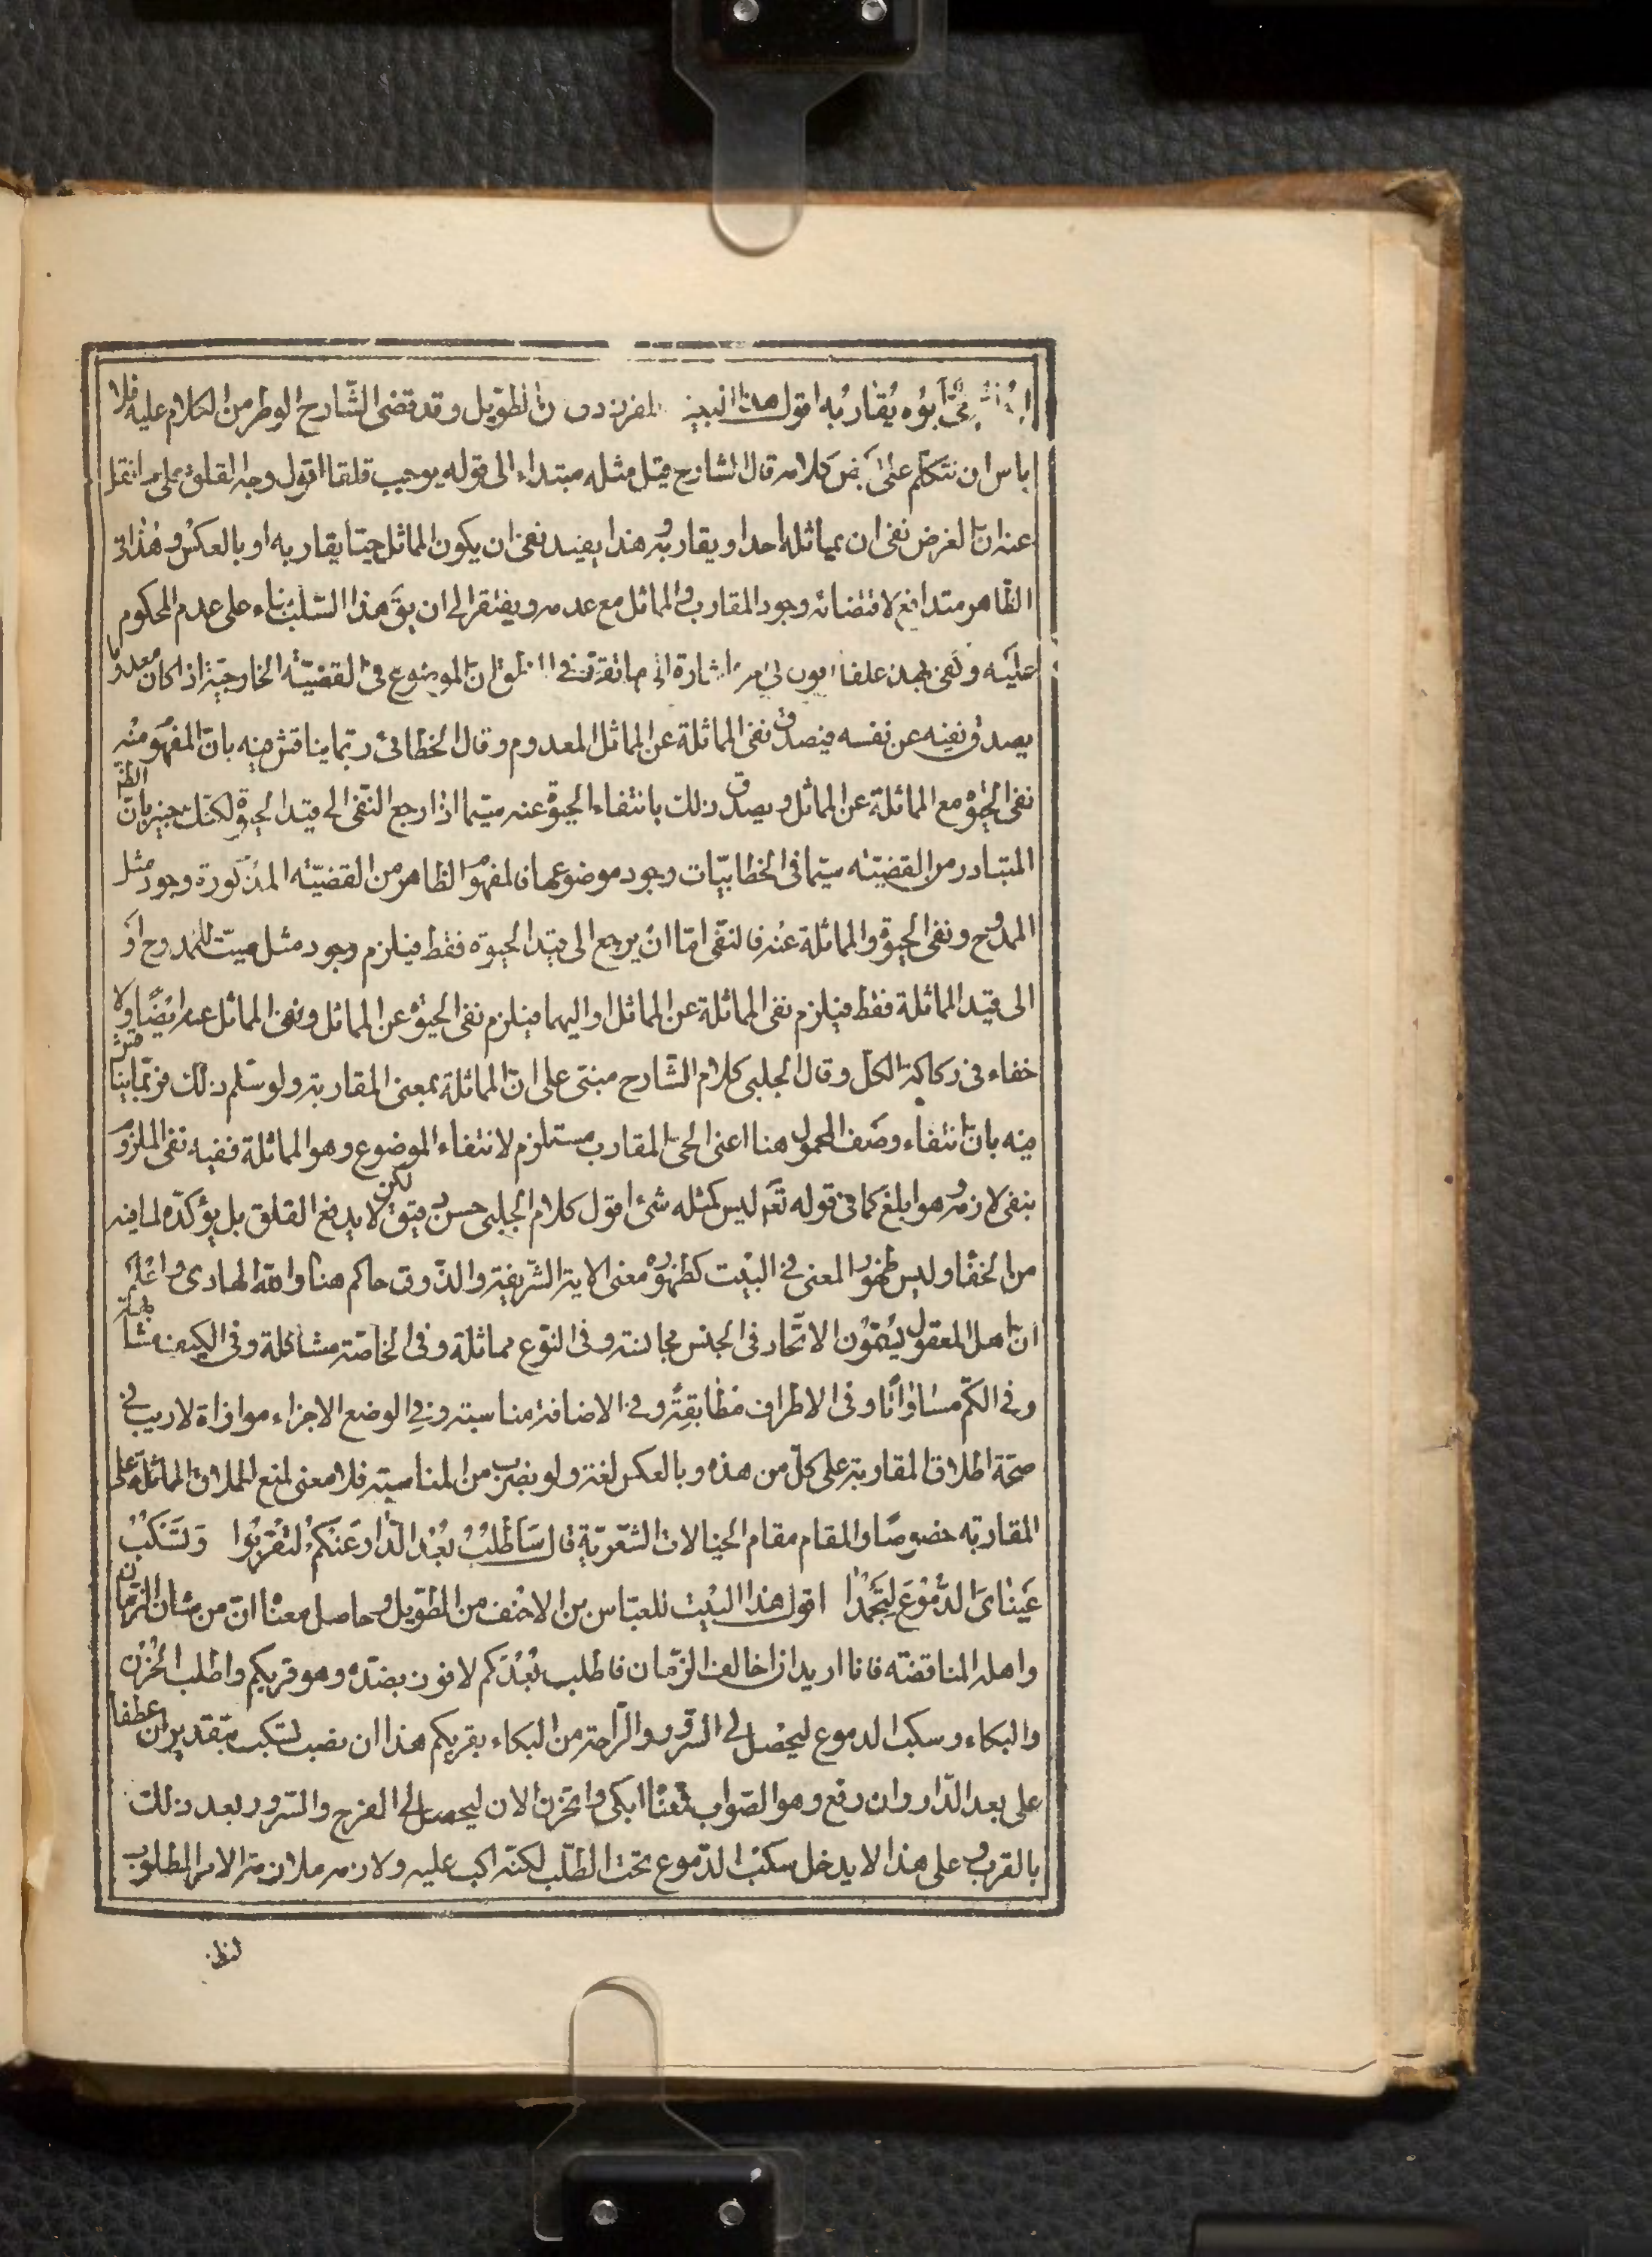 ابوه يقاربه اقول هذا البيت للفرزدق من الطويل وقد قضى الشارح الوطر من الكلام عليه فلا
باس ان نتكلم على بعض كلامه قال الشارح قيل مثله مبتداء الى قوله يوجب قلقا اقول وجه القلق على ما نقل
عنه ان الغرض نفى ان يماثله احد او يقاربه وهذا يفيد نفى ان يكون المماثل حيّا يقاربه او بالعكس وهذا فى
الظاهر متدافع لاقتضائه وجود المقارب والمماثل مع عدمه ويفتقر الى ان يق هذا السّلب بناء على عدم المحكوم
عليه وكفى بهذا قلقا اشارة الى ما تقرّر فى المنطق ان الموضوع فى القضيّة الخارجيّة اذا كان معدوما
يصدق نفيه عن نفسه فيصدق نفى المماثلة عن المماثل المعدوم وقال الخطائى ربّما يناقش فيه بانّ المفهوم منه
نفى الحيوة مع المماثلة عن المماثل ويصدق ذلك بانتفاء الحيوة عنه سيّما اذا رجع النّفى الى قيد الحيوة لكنّك خبير بانّ الظ
المتبادر من القضيّة سيّما فى الخطابيّات وجود موضوعها فالمفهوم الظاهر من القضيّة المذكورة وجود مثل
الممدوح ونفى الحيوة والمماثلة عنه فالنّفى امّا ان يرجع الى قيد الحيوة فقط فيلزم وجود مثل ميّت للممدوح او
الى قيد المماثلة فقط فيلزم نفى المماثلة عن المماثل او اليهما فيلزم نفى الحيوة عن المماثل ونفى المماثل عنه ايضًا ولا
خفاء فى ركاكة الكلّ وقال الجلبى كلام الشّارح مبنىّ على انّ المماثلة بمعنى المقاربة ولو سلّم ذلك فربّما يناقش
فيه بانّ انتفاء وصف المحمول هنا اعنى الحىّ المقارب مستلزم لانتفاء الموضوع وهو المماثلة ففيه نفى الملزوم
بنفى لازمه وهو ابلغ كما فى قوله تعَ ليس كمثله شئ اقول كلام الجلبى حسن دقيق لكن لا يدفع القلق بل يؤكّده لما فيه
من الخفاء وليس ظهور المعنى فى البيت كظهوره معنى الاية الشّريفة والذّوق حاكم هنا والله الهادى واعلم
انّ اهل المعقول يسمّون الاتّحاد فى الجنس مجانسة وفى النّوع مماثلة وفى الخاصّة مشاكلة وفى الكيف مشابهة
وفى الكمّ مساواة وفى الاطراف مطابقة وفى الاضافة مناسبة وفى الوضع الاجزاء موازاة لا ريب فى
صحّة اطلاق المقاربة على كلّ من هذه وبالعكس لغة ولو بضرب من المناسبة فلا معنى لمنع اطلاق المماثلة على
المقاربة خصوصًا والمقام مقام الخيالات الشّعريّة قال سَأَطْلُبُ بُعْدَ الدّارِ عَنْكُمْ لِتَقْرَبُوا وَتَسْكُبُ
عَيْنَاىَ الدُّمُوْعَ لِتَجْمُدَا اقول هذا البيت للعبّاس بن الاحنف من الطّويل وحاصل معناه انّ من شان الزّمان
واهله المناقضة فانا اريد ان اخالف الزّمان فاطلب بُعْدَكم لافوز بضدّه وهو قربكم واطلب الحزن
والبكاء وسكب الدموع ليحصل لى السّرور والرّاحة من البكاء بقربكم هذا ان نصب لتسكب بتقدير ان عطفا
على بعد الدّار وان رفع وهو الصّواب فمعناه ابكى واتحزن الان ليحصل لى الفرج والسّرور بعد ذلك
بالقرب وعلى هذا لا يدخل سكب الدّموع تحت الطّلب لكنّه اكبّ عليه ولازمه ملازمة الامر المطلوب
لنظ